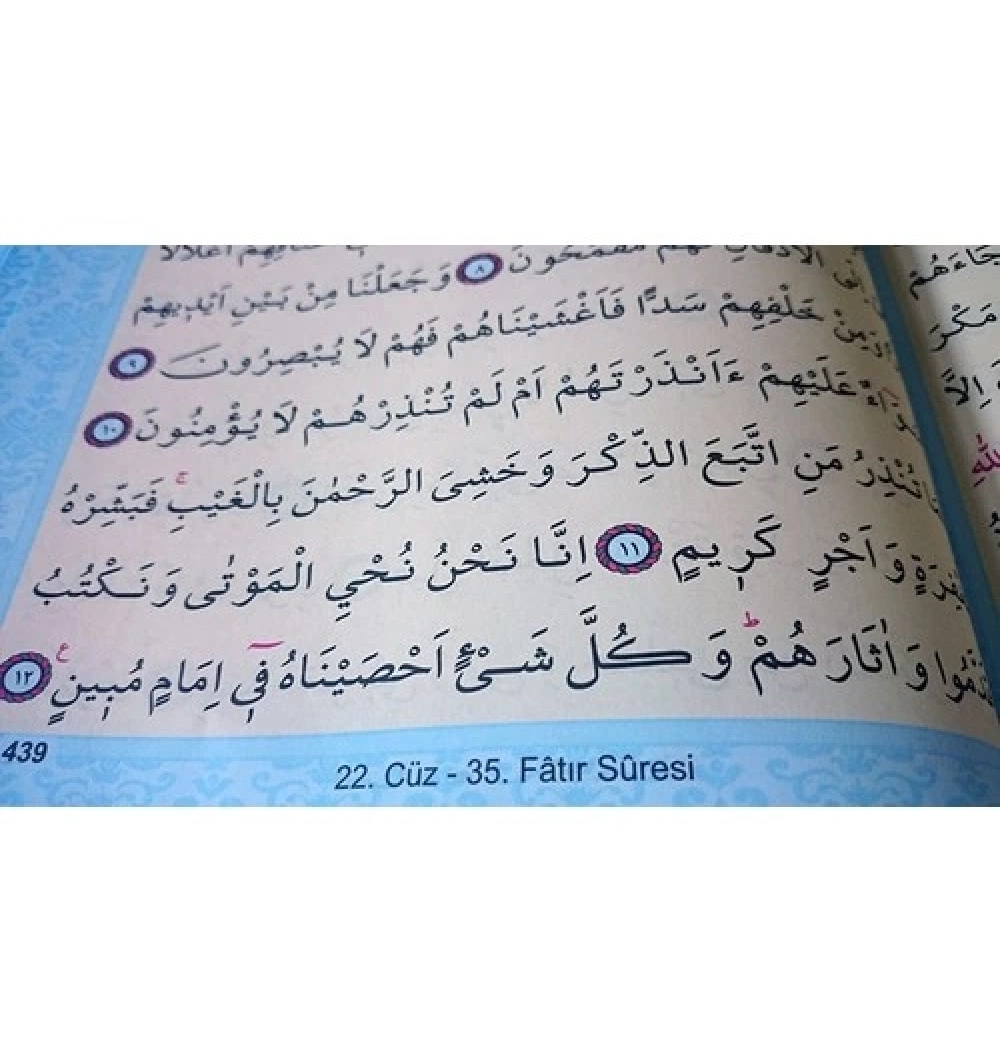 اِلَى الْاَذْقَانِ فَهُمْ مُقْمَحُونَ ٨ وَجَعَلْنَا مِنْ بَيْنِ اَيْد۪يهِمْ
خَلْفِهِمْ سَدًّا فَاَغْشَيْنَاهُمْ فَهُمْ لَا يُبْصِرُونَ ٩
عَلَيْهِمْ ءَاَنْذَرْتَهُمْ اَمْ لَمْ تُنْذِرْهُمْ لَا يُؤْمِنُونَ ١٠
تُنْذِرُ مَنِ اتَّبَعَ الذِّكْرَ وَخَشِىَ الرَّحْمٰنَ بِالْغَيْبِۚ فَبَشِّرْهُ
وَاَجْرٍ كَر۪يمٍ ١١ اِنَّا نَحْنُ نُحْيِ الْمَوْتٰى وَنَكْتُبُ
وَاٰثَارَهُمْۜ وَكُلَّ شَىْءٍ اَحْصَيْنَاهُ ف۪ٓي اِمَامٍ مُب۪ينٍ ع ١٢
439
22. Cüz - 35. Fâtır Sûresi
جَاءَهُمْ
مَكْرَ
اِلَّا